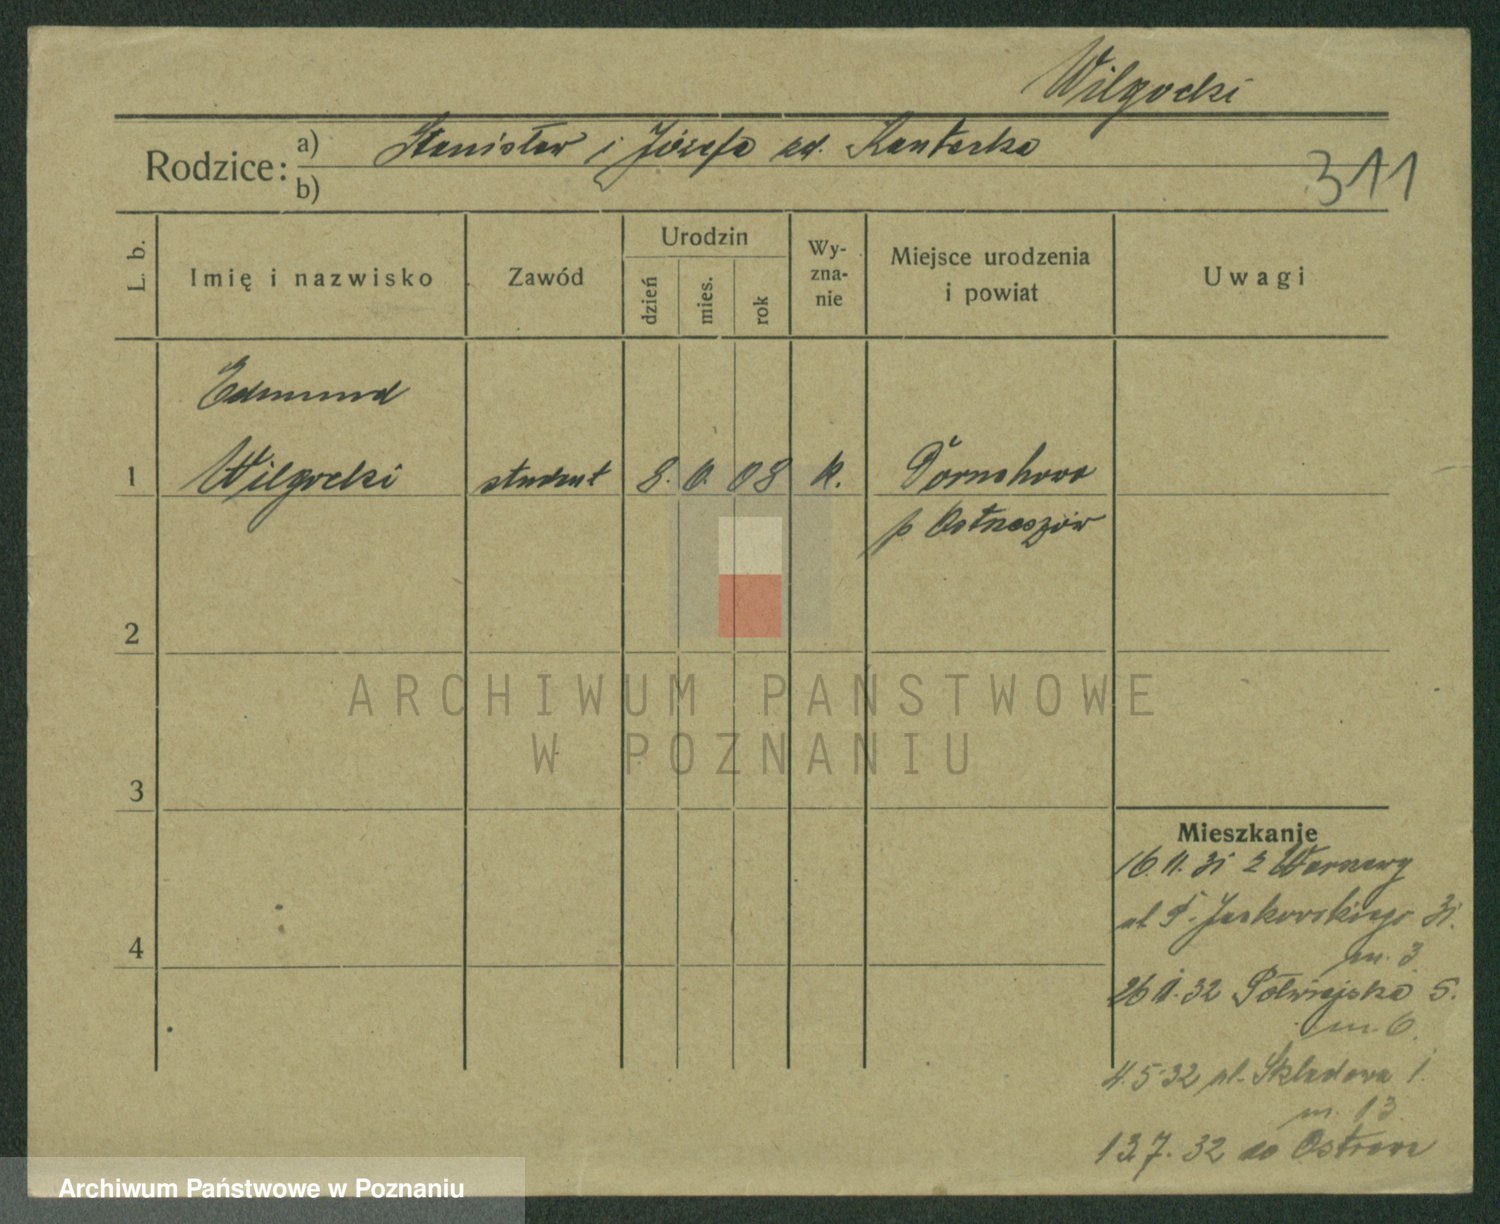 Wilgocki
Rodzice: a) Stanisław i Józefa zd. Kantorka
b)
311
L. b.
Imię i nazwisko
Zawód
Urodzin
dzień
mies.
rok
Wy-
zna-
nie
Miejsce urodzenia
i powiat
Uwagi
Edmund
1 Wilgocki student 8. 08
p Ostrzeszów
2
3
4
ARCHIWUM PAŃSTWOWE
W POZNANIU
Mieszkanie
16.11.31 z Warszawy
Jackowskiego 31.
m. 3
26 1.32 Półwiejska 5.
m 6.
4.5.32 ul. Składowa 1
m. 13
13.7.32 do Ostrowa
Archiwum Państwowe w Poznaniu